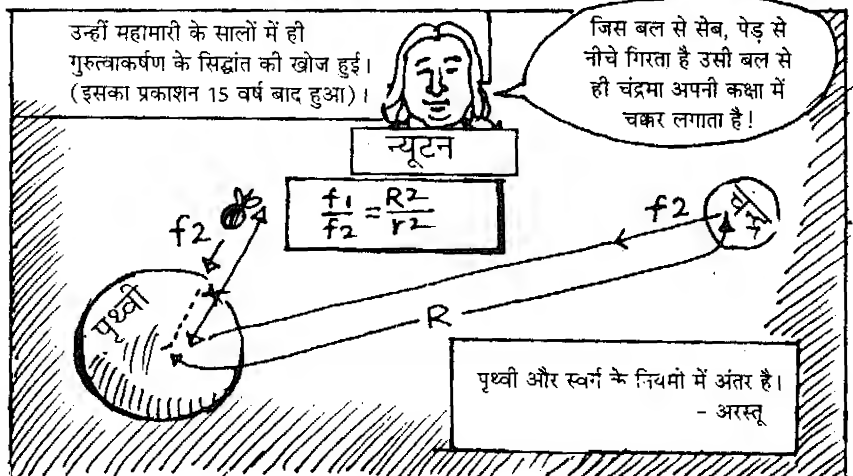 उन्हीं महामारी के सालों में ही
गुरुत्वाकर्षण के सिद्धांत की खोज हुई।
(इसका प्रकाशन 15 वर्ष बाद हुआ)।
जिस बल से सेब, पेड़ से
नीचे गिरता है उसी बल से
ही चंद्रमा अपनी कक्षा में
चक्कर लगाता है!
न्यूटन
f1/f2 = R2/r2
f2
f2
पृथ्वी
R
पृथ्वी और स्वर्ग के नियमो में अंतर है।
- अरस्तू